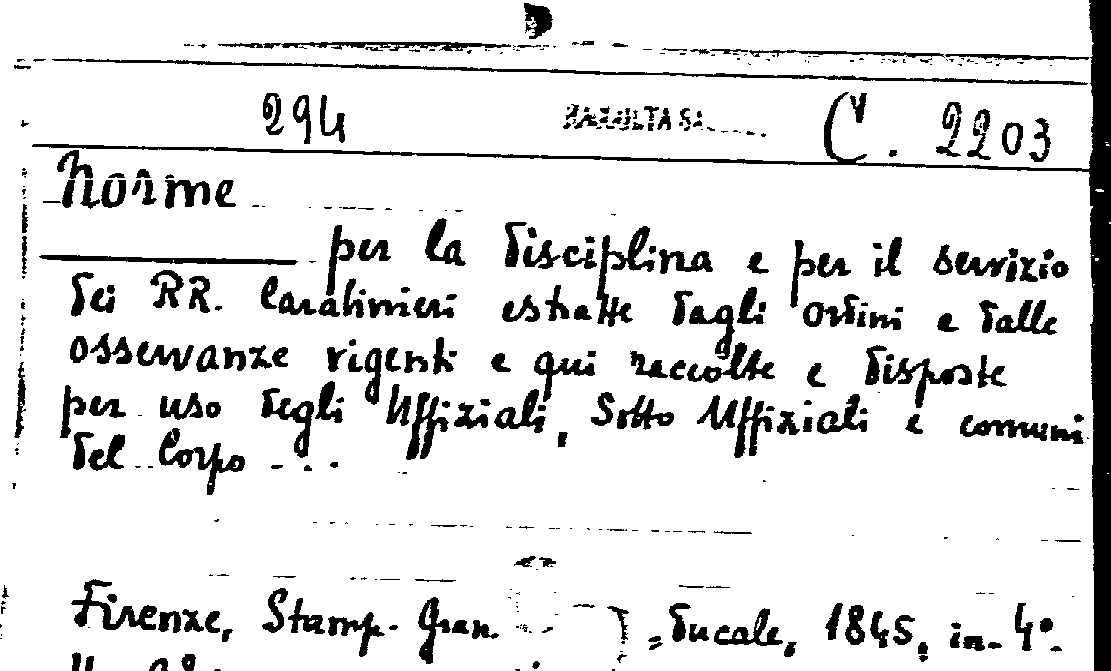 294 RACCOLTA C. 2203
Norme
per la disciplina e per il servizio
dei RR. Carabinieri estratte dagli ordini e dalle
osservanze vigenti e qui raccolte e disposte
per uso degli Uffiziali, Sotto Uffiziali e comuni
del Corpo - . .
Firenze, Stamp. Gran. = Ducale, 1845, in-4°.